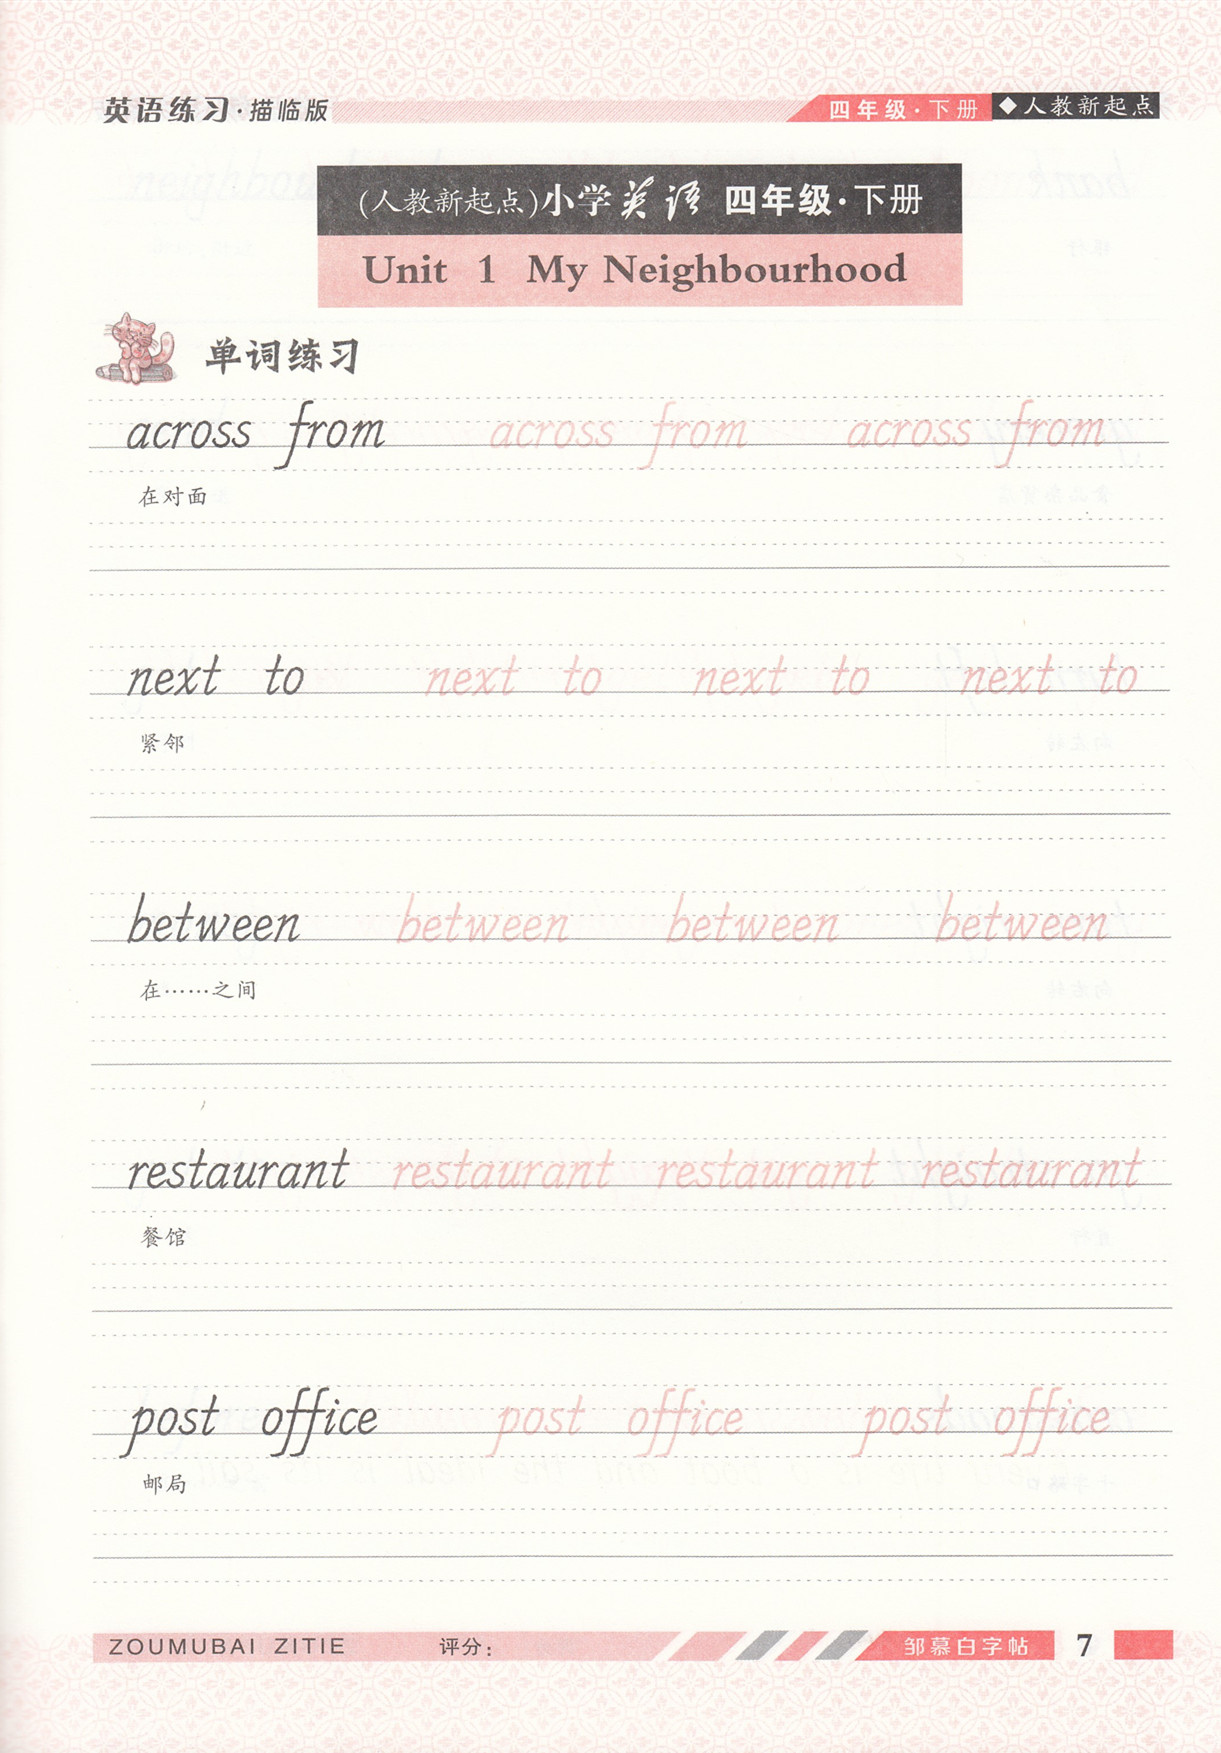 英语练习·描临版 四年级·下册 ◆人教新起点
(人教新起点)小学英语 四年级·下册
Unit 1 My Neighbourhood
单词练习
across from across from across from
在对面
next to next to next to next to
紧邻
between between between between
在……之间
restaurant restaurant restaurant restaurant
餐馆
post office post office post office
邮局
ZOUMUBAI ZITIE 评分: 邹慕白字帖 7